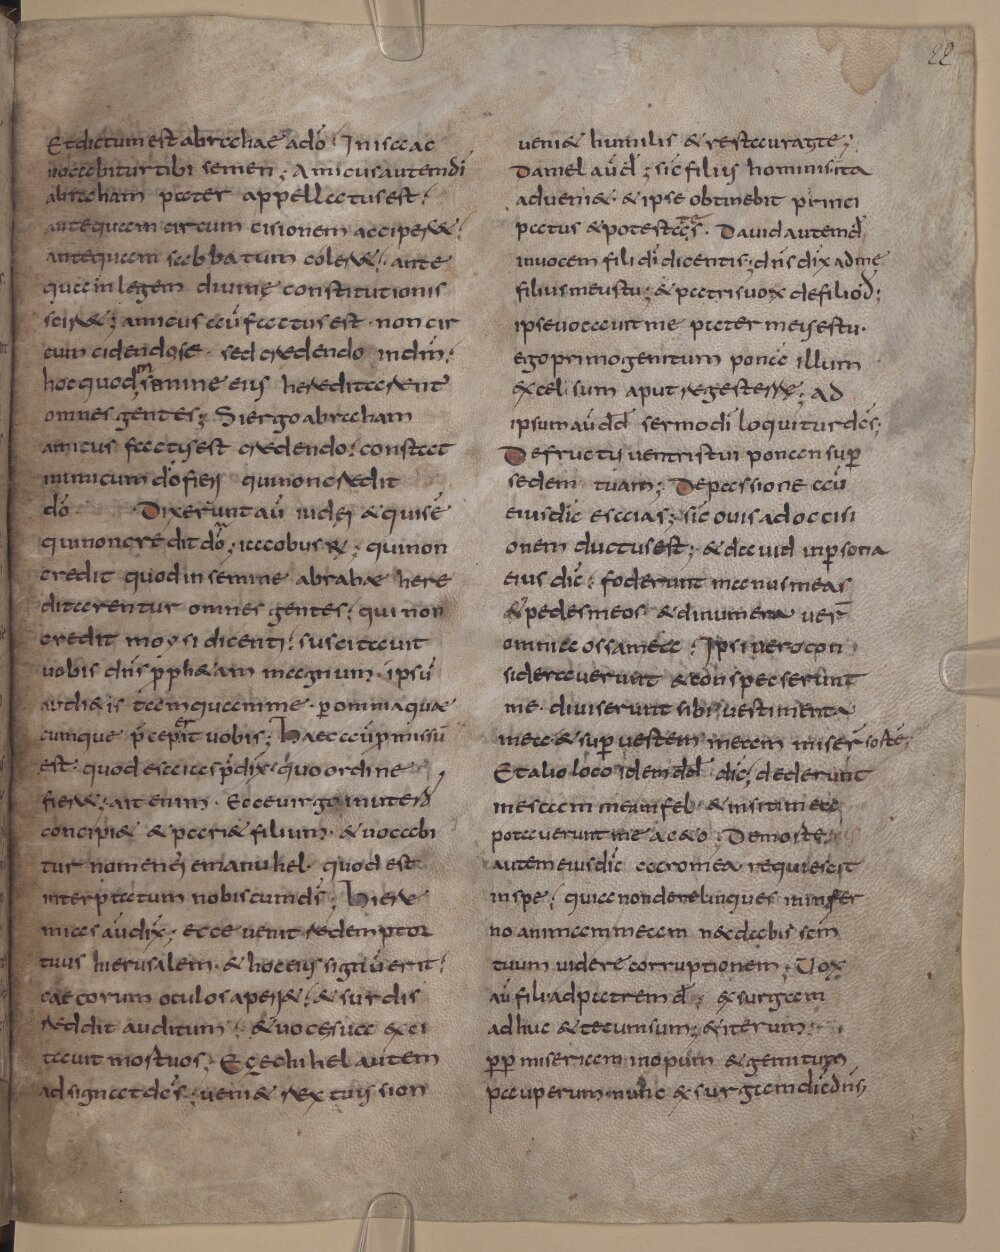 22
Et dictum est abrahae a dō; In isaac
uocabitur tibi semen; Amicus autem dī
abraham pater appellatus est;
antequam circum cisionem acciper&;
antequam sabbatum coler&; ante
quam in legem diuinę constitutionis
scir&; amicus aū factus est non cir
cum cidendose · sed credendo in dm̄;
hoc quod in semine eius hereditarent
omnes gentes; Si ergo abraham
amicus factus est credendo; constat
inimicum dō fieri qui non credit
dō Dixerunt aū iudei & quis ē
qui non credit dō; iacobus r&; qui non
credit quod in semine abrahae here
ditarentur omnes gentes; qui non
credit moysi dicenti; suscitauit
uobis dn̄s proph&am magnum · ipsū
audi&is tamquam me · per omnia quae
cumque p̄ceperit uobis; Haec aū p̄missū
est · quod esaias p̄dix · quo ordine
fier&; ait enim · Ecce uirgo in uterō
concipi& & pari& filium · & uocabi
tur nomen eī emanuhel · quod est
interpraetatum nobiscum dś; Hiere
mias aū dix; ecce uenit redemptor
tuus hierusalem · & hoc eius signū erit;
caecorum oculos aperi&; & surdis
reddit auditum; & uoce sua exci
tauit mortuos; Ezechihel autem
ad signat deś; ueni& rex tuus sion
ueni& humilis & restaurat te;
Daniel aū d̄; sic filius hominis ita
adueni& · & ipse obtinebit princi
patus & potestates · Dauid autem d̄
in uocem fili dī dicentis; dn̄s dix ad me
filius meus tu; & patris uox de filio d̄;
ipse uocauit me pater meus es tu ·
ego primogenitum ponā illum
excelsum aput reges terre; ad
ipsum aū d̄d sermo dī loquitur deś;
De fructu uentris tui ponam sup̄
sedem tuam; De passione aū
eius dic̄ esaias; sic ouis ad occisi
onem ductus est; & dauid in p̄sona
eius dic̄; foderunt manus meas
& pedes meos · & dinumera uer̄
omnia ossa mea; Ipsi uero con
siderauerunt & conspexerunt
me · diuiserunt sibi uestimenta
mea & sup̄ uestem meam miser̄ sortē;
Et alio loco idem d̄d dic̄; dederunt
in escam meam fel · & in siti mea
potauerunt me ac&o; De morte
autem eius dic̄ caro mea requiescit
in spe; quia non derelinques in infer
no animam meam nec dabis sc̄m
tuum uidere corruptionem; Uox
aū filii ad patrem d̄; exsurgam
adhuc & tecum sum; & iterum;
p̄p miseriam inopum & gemitum
pauperum · nunc exsurgam dic̄ dn̄s;